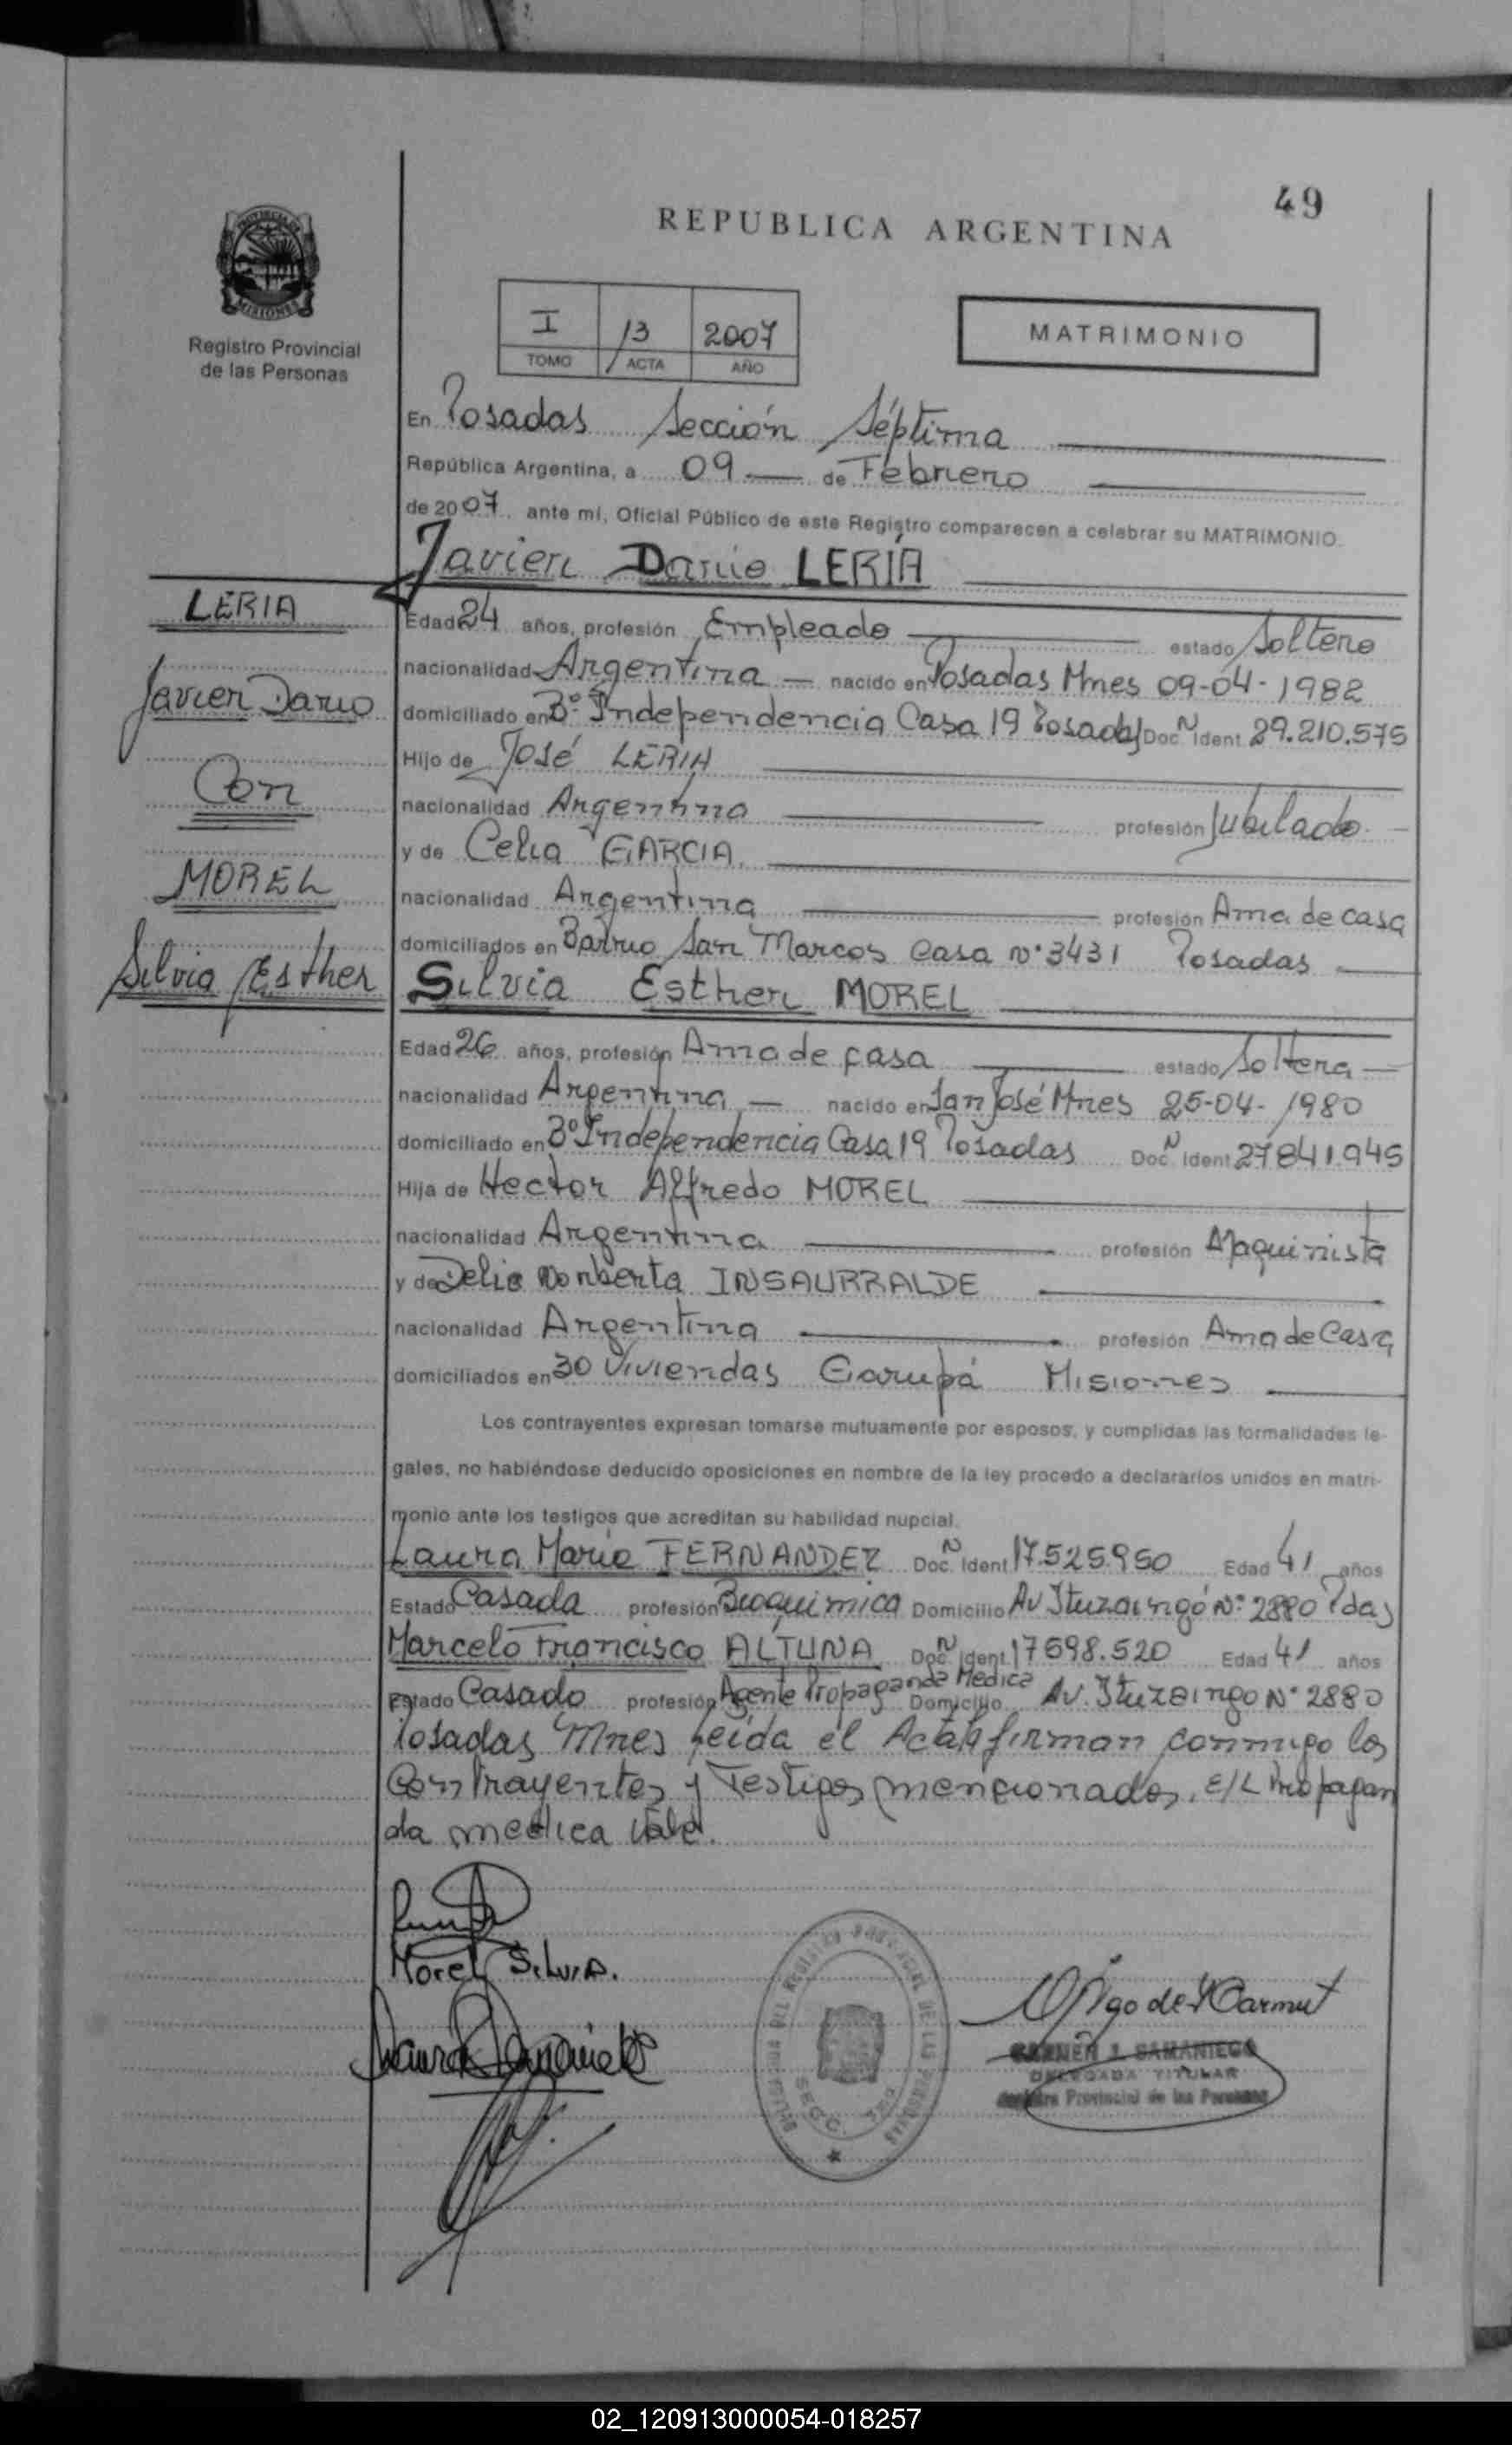 49
REPUBLICA ARGENTINA
PROVINCIA DE
MISIONES
Registro Provincial
de las Personas
I 13 2007
TOMO ACTA AÑO
MATRIMONIO
En Posadas Sección Séptima
República Argentina, a 09 de Febrero
de 2007 ante mi, Oficial Público de este Registro comparecen a celebrar su MATRIMONIO.
Javier Dario LERIA
LERIA
Javier Dario
Con
MOREL
Silvia Esther
Edad 24 años, profesión Empleado estado Soltero
nacionalidad Argentina nacido en Posadas Mnes 09-04-1982
domiciliado en Bº Independencia Casa 19 Posadas Doc. N Ident. 29.210.575
Hijo de José LERIA
nacionalidad Argentina profesión Jubilado
y de Celia GARCIA
nacionalidad Argentina profesión Ama de casa
domiciliados en Barrio San Marcos Casa Nº 3431 Posadas
Silvia Esther MOREL
Edad 26 años, profesión Ama de casa estado Soltera
nacionalidad Argentina nacido en San José Mnes 25-04-1980
domiciliado en Bº Independencia Casa 19 Posadas Doc. N Ident. 27841.945
Hija de Hector Alfredo MOREL
nacionalidad Argentina profesión Maquinista
y de Delia Norberta INSAURRALDE
nacionalidad Argentina profesión Ama de Casa
domiciliados en 30 Viviendas Garupá Misiones
Los contrayentes expresan tomarse mutuamente por esposos, y cumplidas las formalidades le-
gales, no habiéndose deducido oposiciones en nombre de la ley procedo a declararlos unidos en matri-
monio ante los testigos que acreditan su habilidad nupcial.
Laura Maria FERNANDEZ Doc. N Ident. 17.525.950 Edad 41 años
Estado Casada profesión Bioquimica Domicilio Av Ituzaingó Nº 2880 Pdas
Marcelo Francisco ALTUNA Doc. N Ident. 17598.520 Edad 41 años
Estado Casado profesión Agente Propaganda Medica Domicilio Av. Ituzaingo Nº 2880
Posadas Mnes Leida el Acta firman conmigo los
Contrayentes y Testigos mencionados. E/L Propagan
da medica Vale.
Morel Silvia.
SECC. 7ma
CARMEN I. SAMANIEGO
DELEGADA TITULAR
Registro Provincial de las Personas
02_120913000054-018257